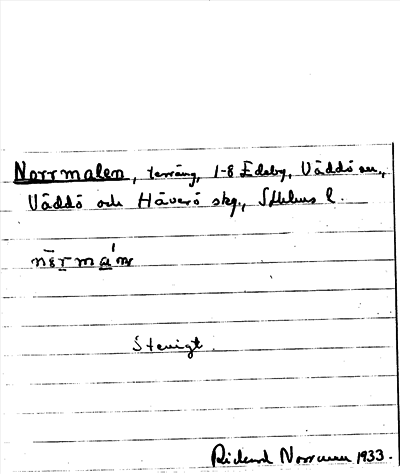 Norrmalen, terräng, 1-8 Edeby, Väddö sn.,
Väddö och Häverö skg., Sthlms l.
Stenigt.
Rickard Norrman 1933.